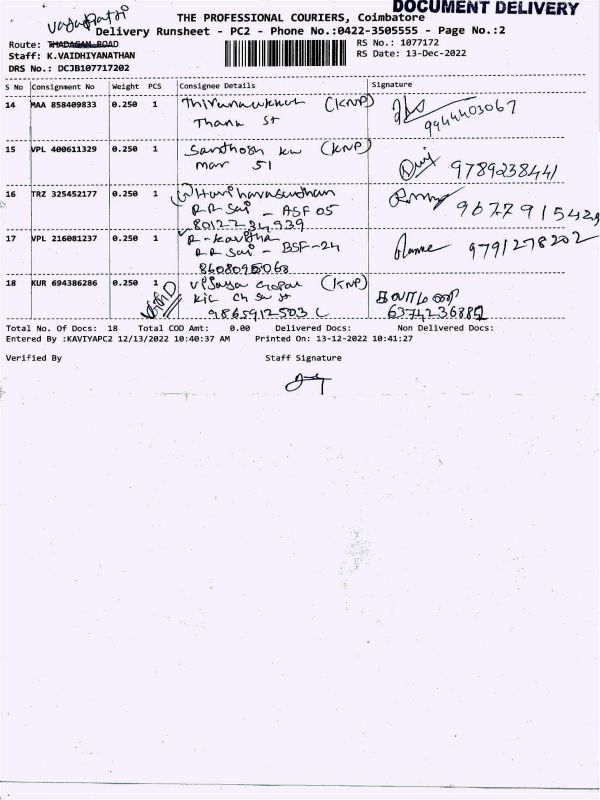 DOCUMENT DELIVERY
THE PROFESSIONAL COURIERS, Coimbatore
Delivery Runsheet - PC2 - Phone No.:0422-3505555 - Page No.:2
Route: THADAGAM ROAD
RS No.: 1077172
Staff: K.VAIDHIYANATHAN
RS Date: 13-Dec-2022
DRS No.: DCJB107717202
S No Consignment No Weight PCS Consignee Details Signature
14 MAA 858409833 0.250 1 (KNP)
Thank St
9944403067
15 VPL 400611329 0.250 1 Santhosh kw (KNP)
mar 51
9789238441
16 TRZ 325452177 0.250 1 Hariharasudhan
RR Sai - ASF 05
8012234939
9677915429
17 VPL 216081237 0.250 1 R-Kavitha
RR Sai - BSF-24
9791278202
18 KUR 694386286 0.250 1 Vijaya Gopal (KNP)
9865912503
Total No. Of Docs: 18 Total COD Amt: 0.00 Delivered Docs: Non Delivered Docs:
Entered By :KAVIYAPC2 12/13/2022 10:40:37 AM Printed On: 13-12-2022 10:41:27
Verified By Staff Signature